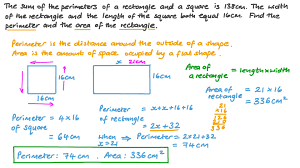 The sum of the perimeters of a rectangle and a square is 138cm. The width
of the rectangle and the length of the square both equal 16cm. Find the
perimeter and the area of the rectangle.
Perimeter is the distance around the outside of a shape.
Area is the amount of space occupied by a flat shape.
x 21cm
16cm
16cm
16cm
Area of
a rectangle = length x width
Area of
rectangle = 21 x 16
= 336cm²
21
x 16
Perimeter = 4 x 16
of square
= 64cm
Perimeter = x+x+16+16
of rectangle
= 2x+32
when x=21 ⇒ Perimeter = 2x21+32
= 74cm
Perimeter: 74cm. Area: 336cm²